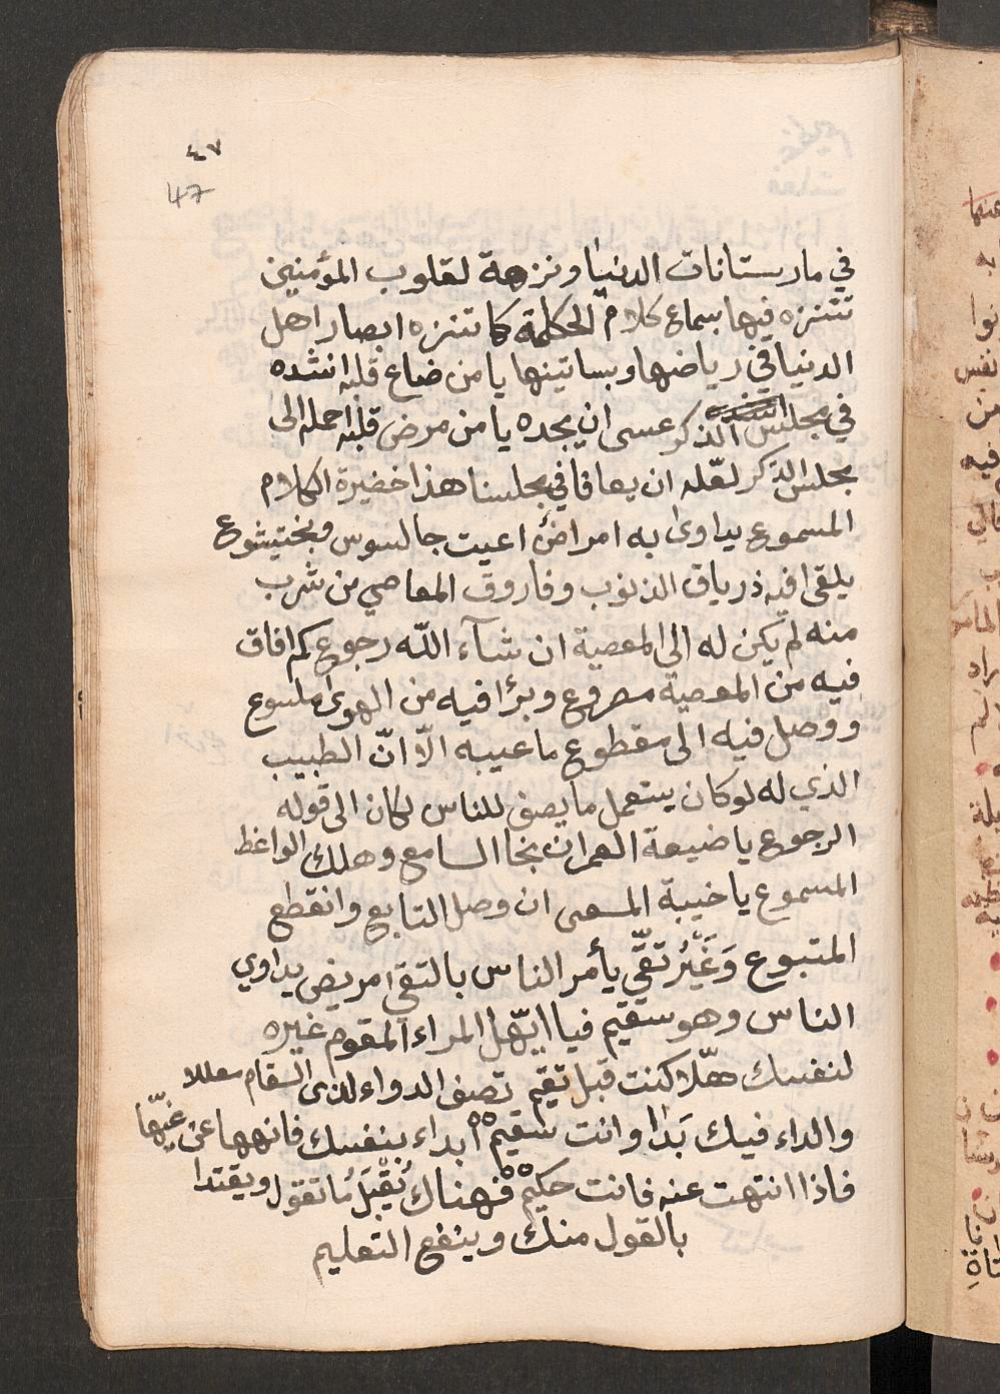 ٤٧
47
في مارستانات الدنيا ونزهة لقلوب المؤمنين
تتنزه فيها بسماع كلام الحكمة كما تتنزه ابصار اهل
الدنيا في رياضها وبساتينها يا من ضاع قلبه انشده
في مجلس الذكر عسى ان يجده يا من مرض قلبه احمله الى
مجلس الذكر لعّله ان يعافا في مجلسنا هذا خضيرة الكلام
المسموع يداوى به امراض اعيت جالسوس وبختيشوع
يلقى فيه ذرياق الذنوب وفاروق المعاصي من شرب
منه لم يكن له الى المعصية ان شآء اللّه رجوع كم افاق
فيه من المعصية مصروع وبرؤا فيه من الهوى ملسوع
ووصل فيه الى مقطوع ما عيبه الاّ انّ الطبيب
الذي له لو كان يستعمل ما يصف للناس لكان الى قوله
الرجوع يا ضيعة العمر ان نجا السامع وهلك الواعظ
المسموع يا خيبة المسعى ان وصل التابع وانقطع
المتبوع وَغَيْرُ تقّي يأمر الناس بالتقى مريض يداوي
الناس وهو سقيم فيا ايّها المراء المقوم غيره
لنفسك هلّا كنت قبل تقيم تصف الدواء لذى السقام معللا
والداء فيك بَدَا وانت سقيم ابداء بنفسك فانهها عن غيّها
فاذا انتهت عنه فانت حكيم فهناك يُقْبَلُ ما تقول ويقتدا
بالقول منك وينفع التعليم